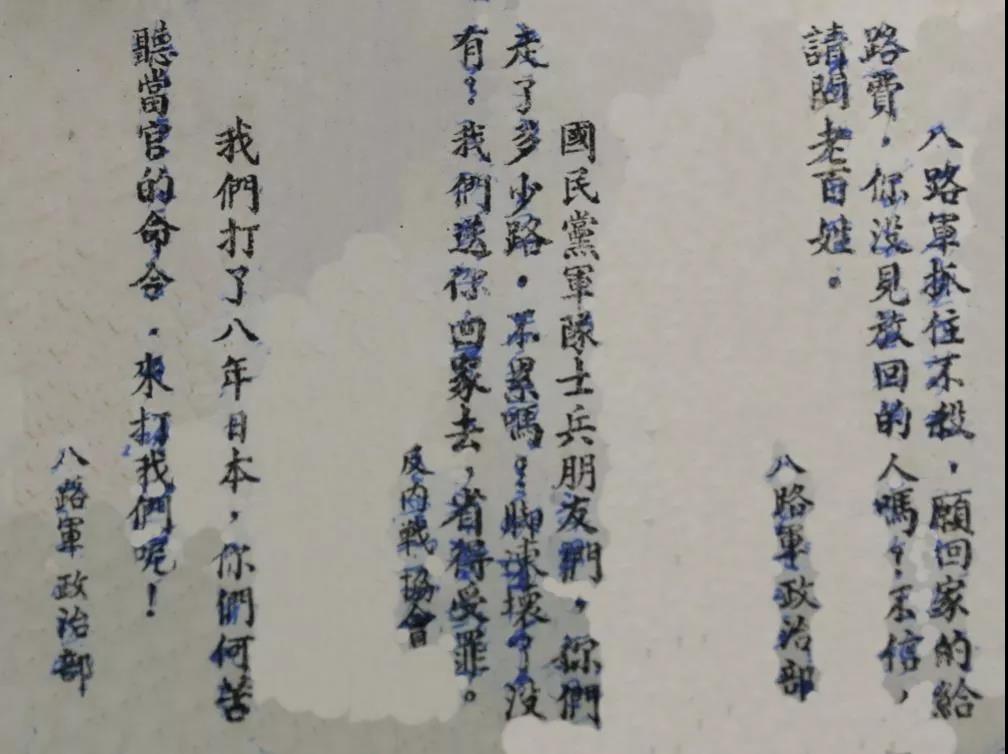 八路軍抓住不殺，願回家的給
路費，你沒見放回的人嗎？不信，
請問老百姓。
八路軍政治部
國民黨軍隊士兵朋友們，你們
走了多少路。不累嗎？腳凍壞了沒
有？我們送你回家去，省得受罪。
反內戰協會
我們打了八年日本，你們何苦
聽當官的命令．來打我們呢！
八路軍政治部